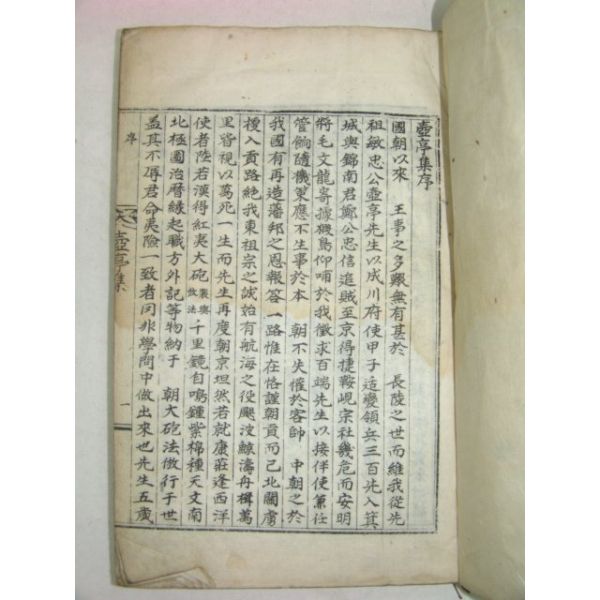 壺亭集序
國朝以來 王事之多艱無有甚於 長陵之世而維我從先
祖敏忠公壺亭先生以成川府使甲子适變領兵三百先入箕
城與錦南君鄭公忠信追賊至京得捷鞍峴宗社幾危而安明
將毛文龍寄據椵島仰哺於我徵求百端先生以接伴使兼任
管餉隨機策應不生事於本 朝不失懽於客帥 中朝之於
我國有再造藩邦之恩報答一路惟在恪謹朝貢而己北關虜
梗入貢路絶我東祖宗之誠始有航海之役颶波鯨濤舟楫萬
里皆視以萬死一生而先生再度朝京坦然若就康莊逢西洋
使者陸若漢得紅夷大砲製與放法千里鏡自鳴鍾紫棉種天文南
北極圖治曆緣起職方外記等物納于 朝大砲法倣行于世
益其不辱君命夷險一致者何非學問中做出來也先生五歲
序
壺亭集
一